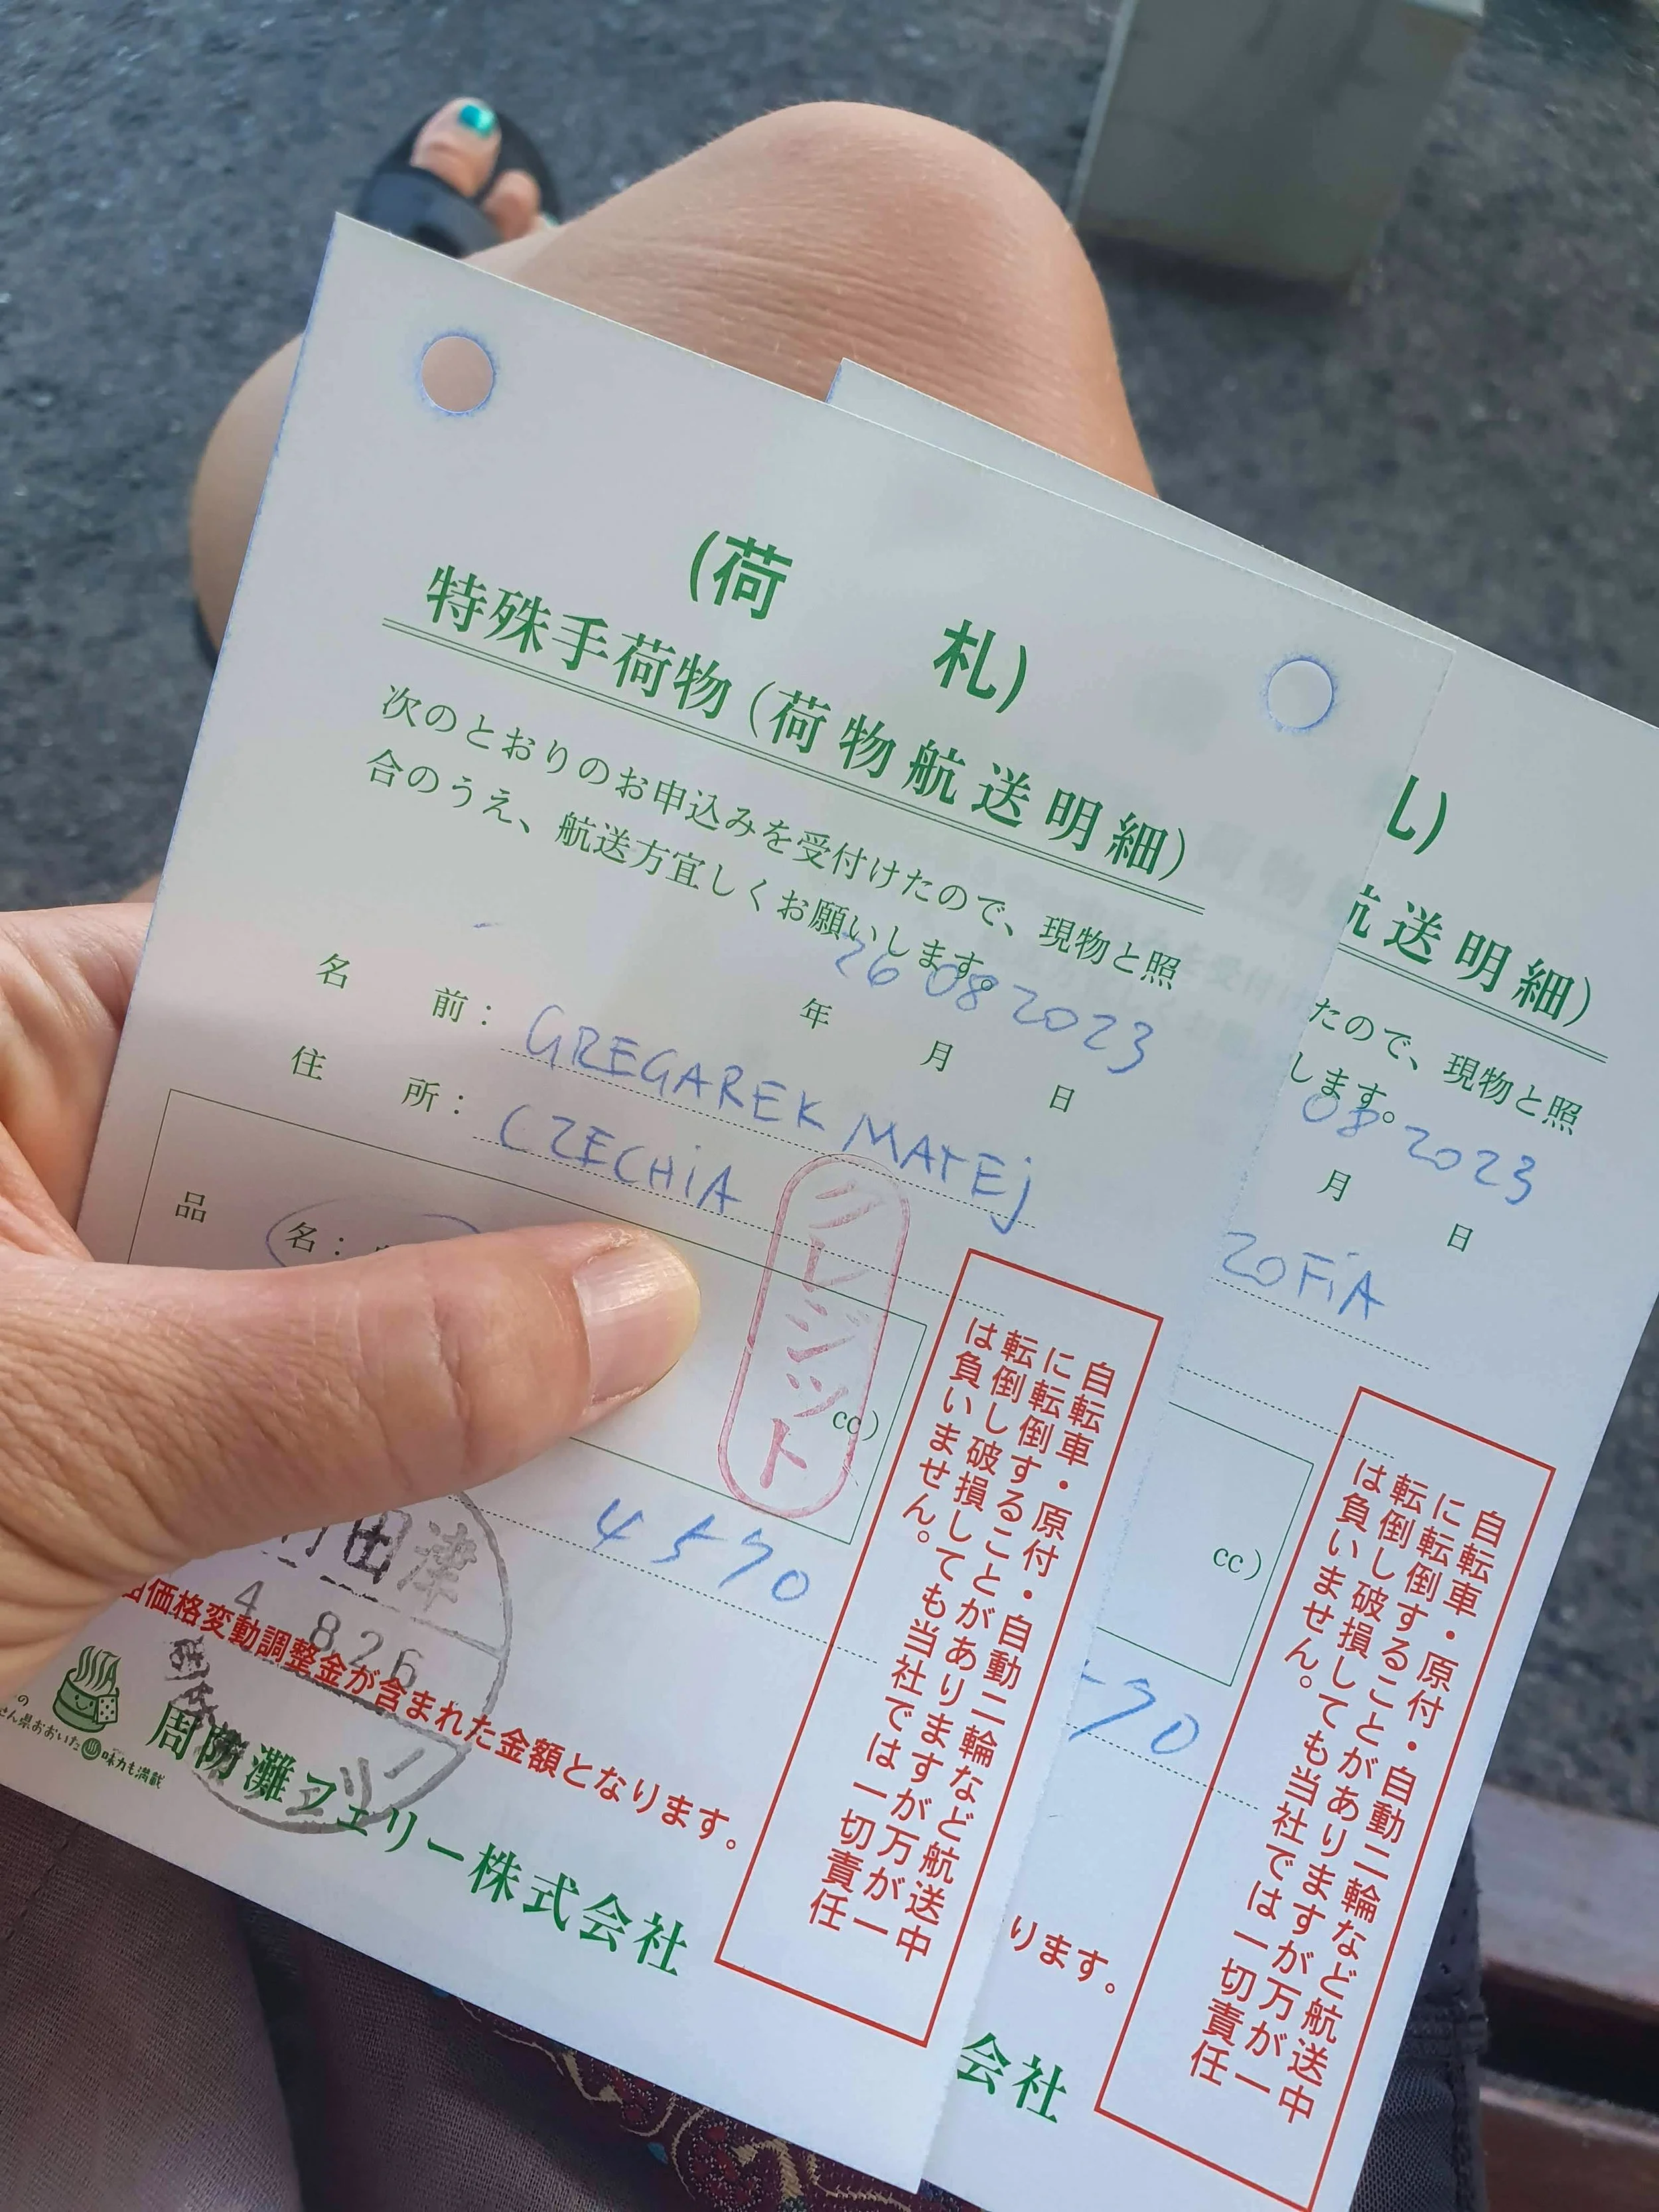 (荷 札)
特殊手荷物(荷物航送明細)
次のとおりのお申込みを受付けたので、現物と照
合のうえ、航送方宜しくお願いします。
26 08 2023
年 月 日
名 前: GREGAREK MATEJ
住 所: CZECHIA
品 名:
クレジット
cc)
4570
田津
4 8 26
価格変動調整金が含まれた金額となります。
せん県おおいた 味力も満載
周防灘フェリー株式会社
自転車・原付・自動二輪など航送中
に転倒することがありますが万が一
転倒し破損しても当社では一切責任
は負いません。
札)
航送明細)
たので、現物と照
します。
08 2023
月 日
ZOFIA
cc)
70
ります。
会社
自転車・原付・自動二輪など航送中
に転倒することがありますが万が一
転倒し破損しても当社では一切責任
は負いません。